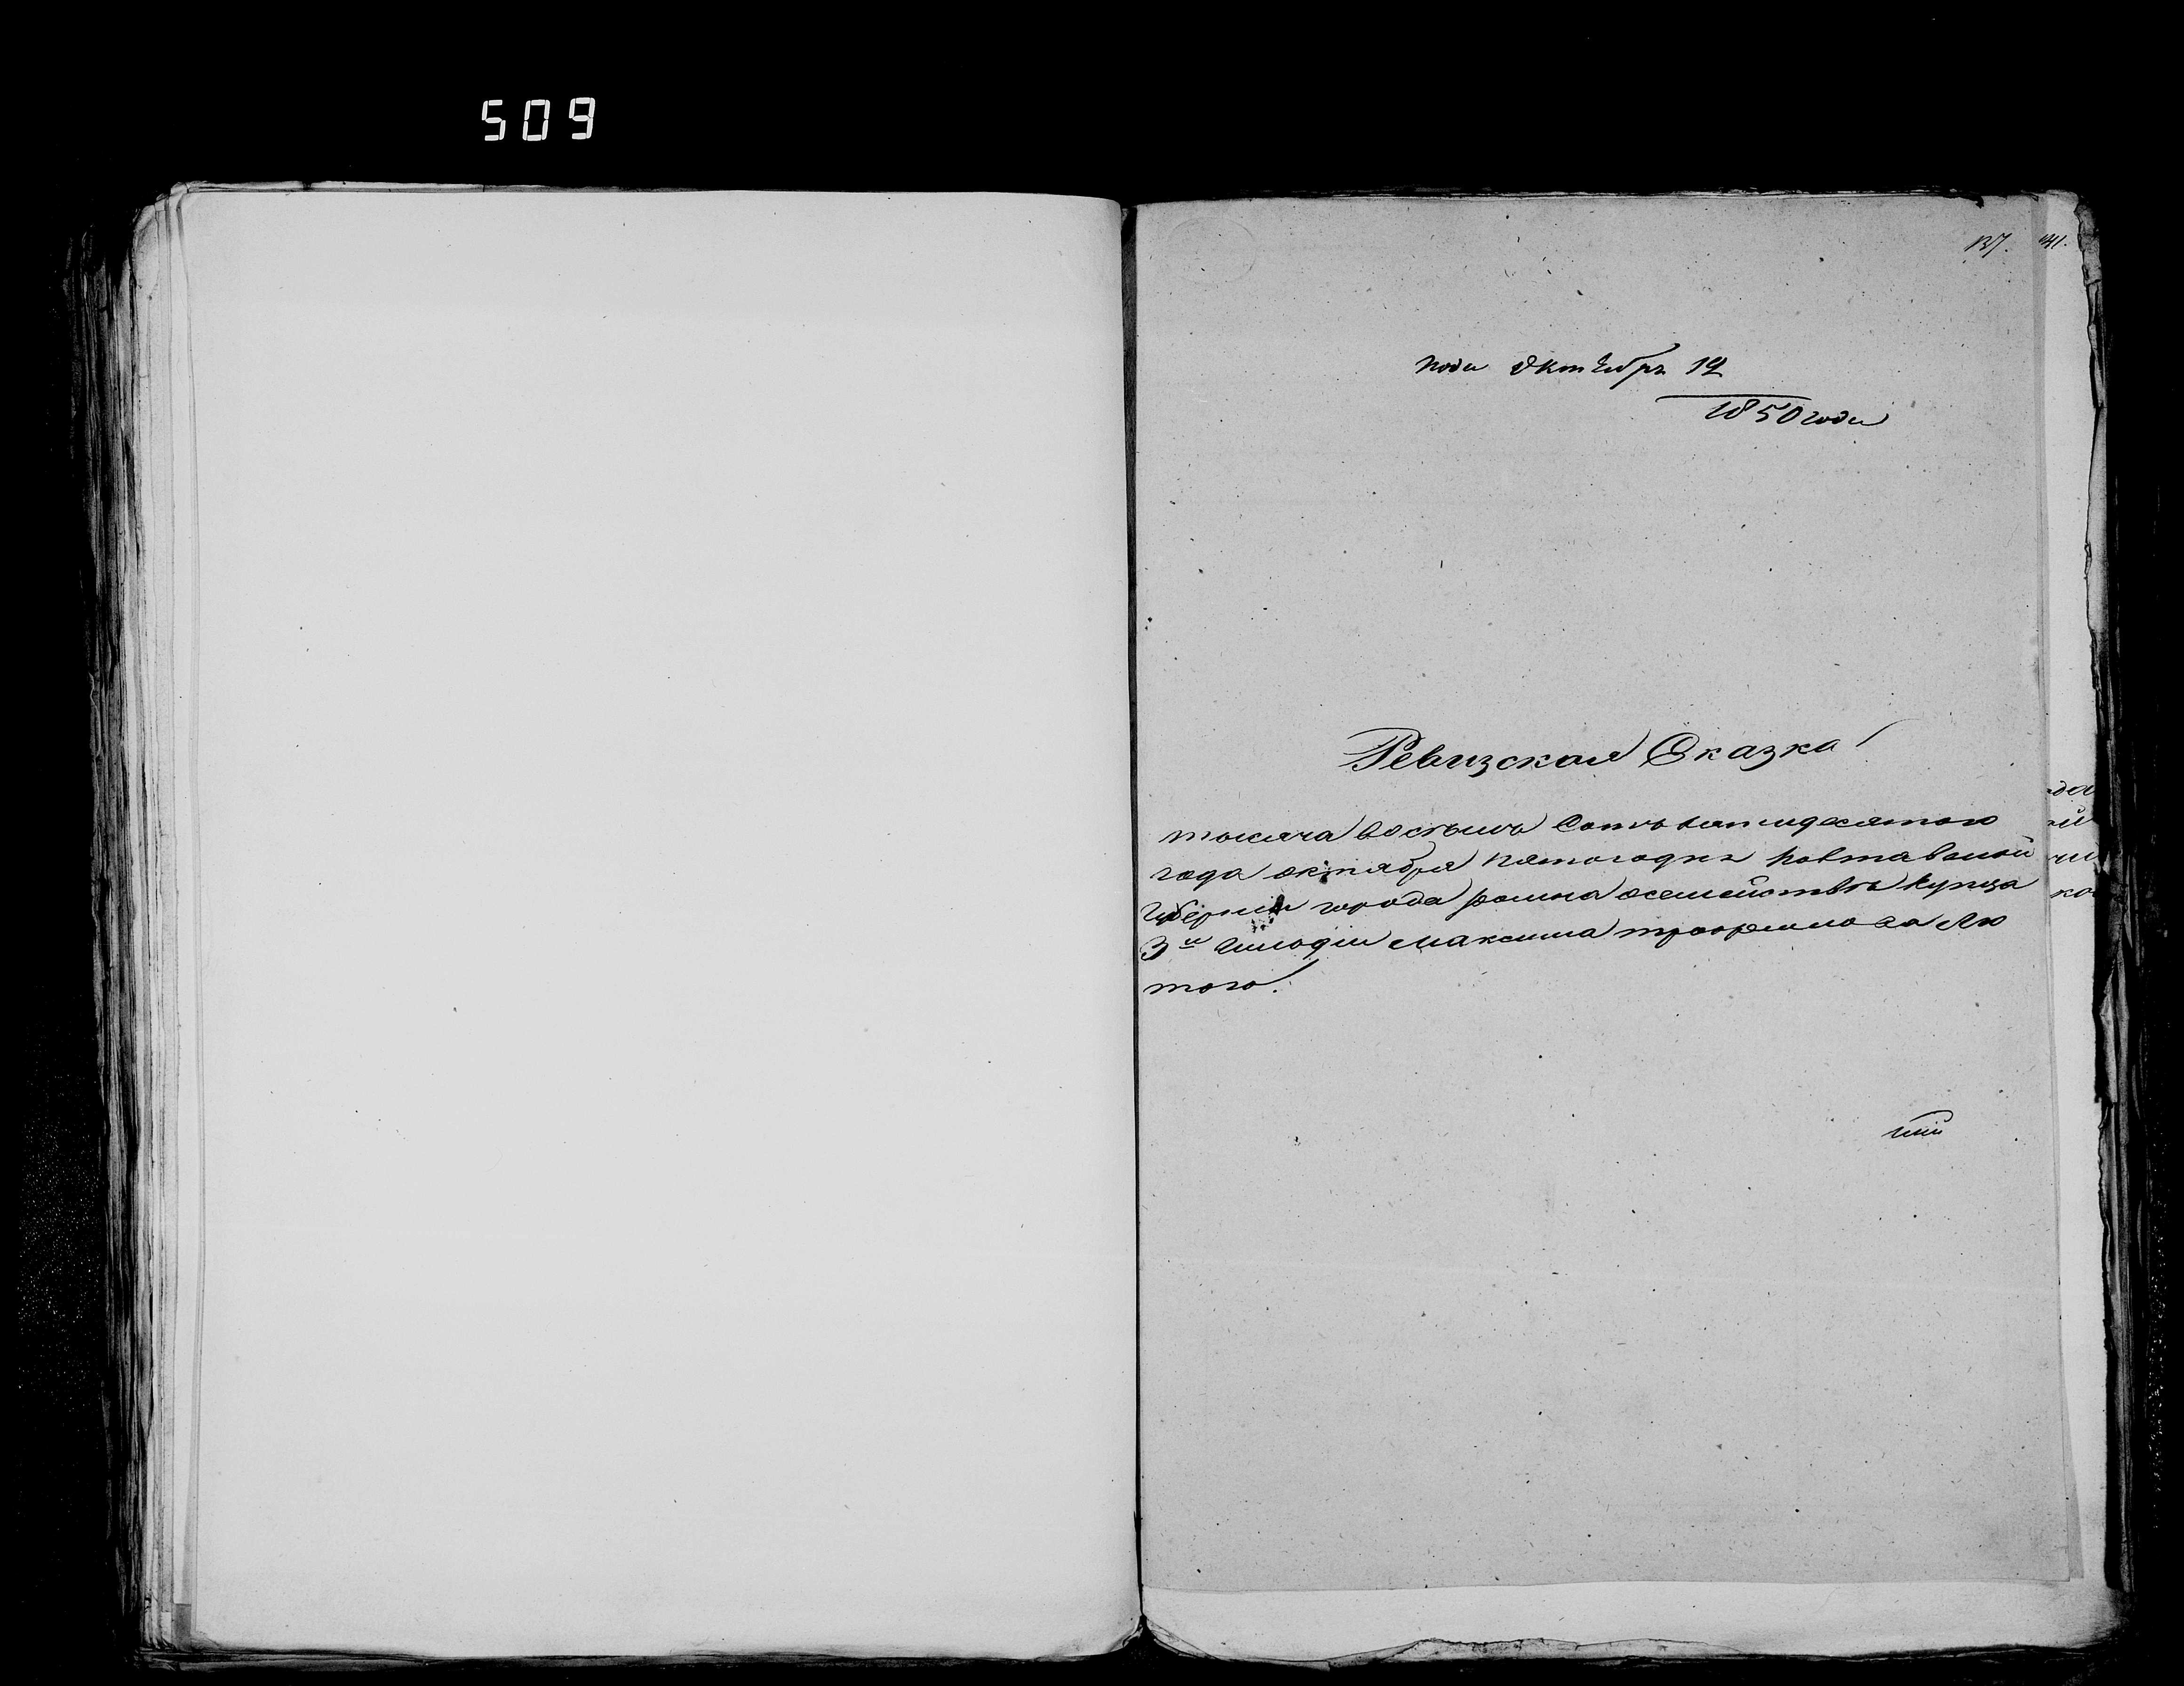 509
137. 141.
пода Октебря 12
1850 года
Ревизская Сказка
тысяча восьмь Сотъ пятидесятого
года октября пятого дня Полтавской
Губернии города ромна осемействе купца
3й Гилдии Максима трофимова Лю
того.